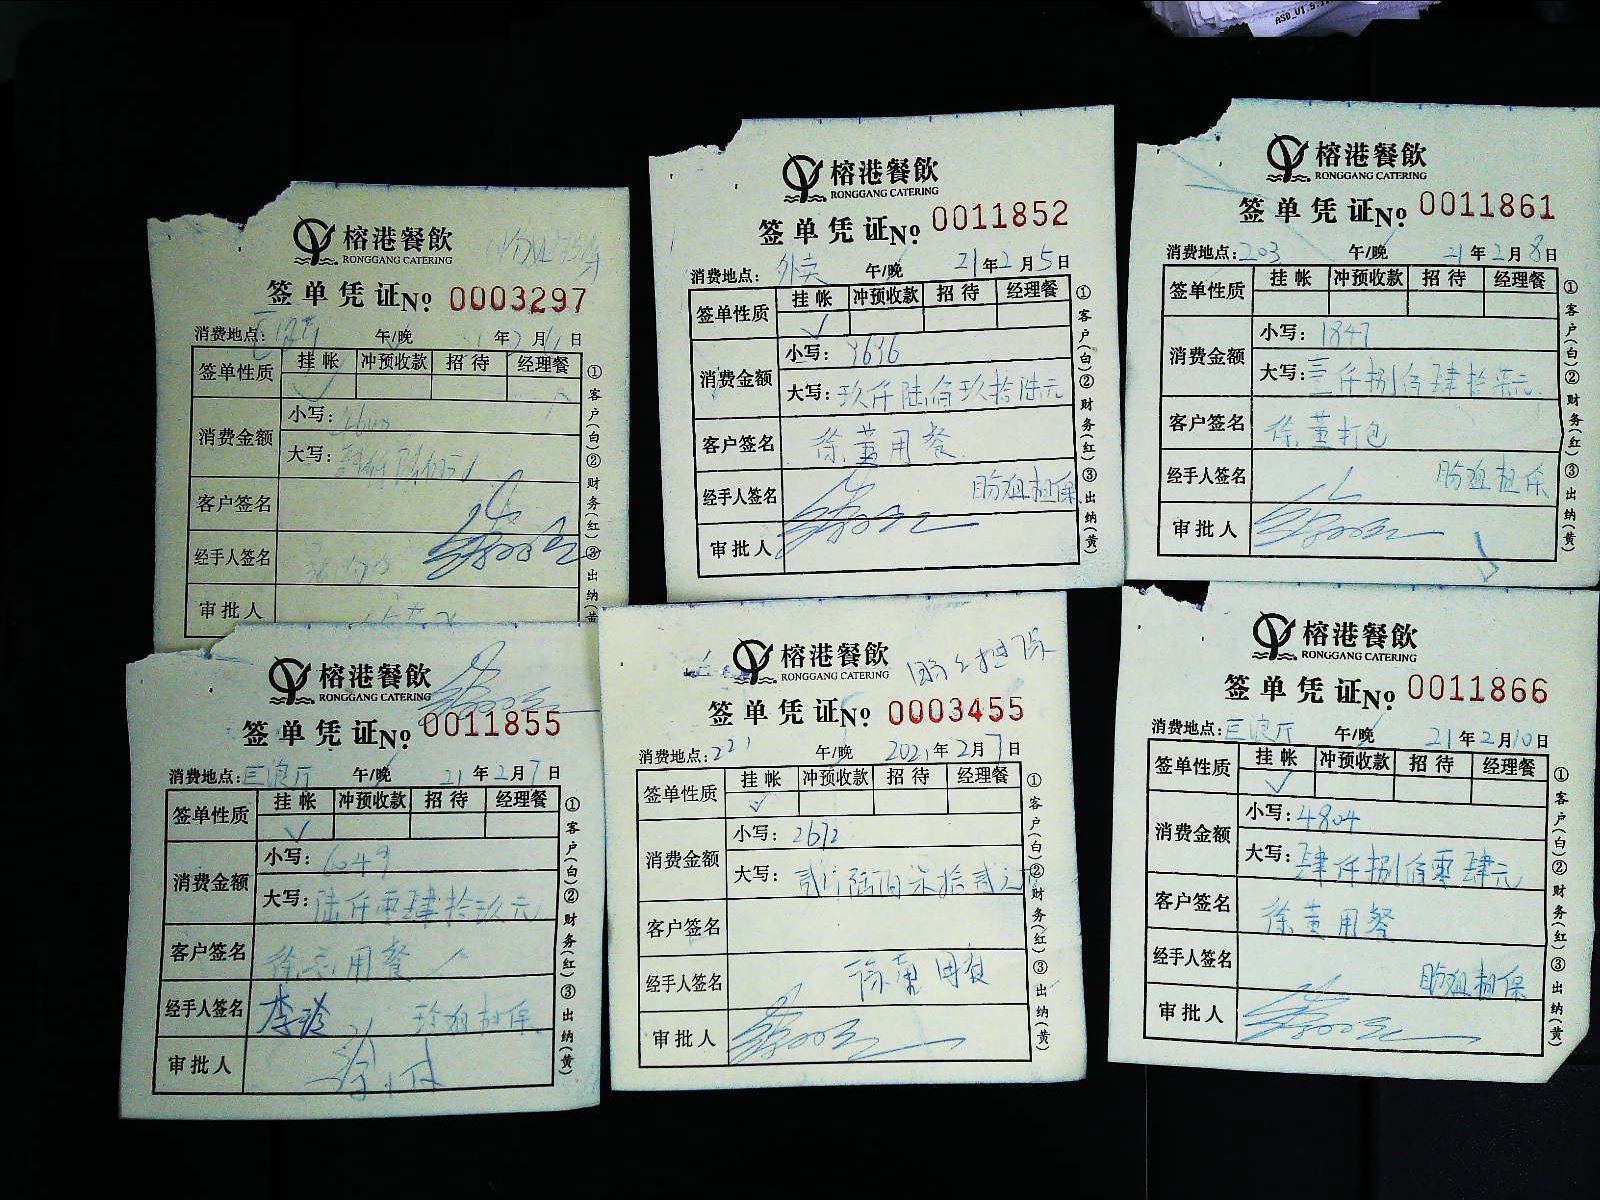 ASD_V1.5.1
榕港餐飲
RONGGANG CATERING
签单凭证No 0003297
消费地点: 午/晚 年2月日
签单性质 挂帐 冲预收款 招待 经理餐
消费金额 小写:
大写:
客户签名
经手人签名
审批人
①客户(白)②财务(红)③出纳(黄
榕港餐飲
RONGGANG CATERING
签单凭证No 0011852
消费地点: 外卖 午/晚 21年2月5日
签单性质 挂帐 冲预收款 招待 经理餐
消费金额 小写: 9696
大写: 玖仟陆佰玖拾陆元
客户签名 徐董用餐
经手人签名 担保
审批人
①客户(白)②财务(红)③出纳(黄)
榕港餐飲
RONGGANG CATERING
签单凭证No 0011861
消费地点: 203 午/晚 21年2月8日
签单性质 挂帐 冲预收款 招待 经理餐
消费金额 小写: 3847
大写: 叁仟捌佰肆拾柒元
客户签名 徐董打包
经手人签名 担保
审批人
①客户(白)②财务(红)③出纳(黄)
榕港餐飲
RONGGANG CATERING
签单凭证No 0011855
消费地点: 巨浪厅 午/晚 21年2月7日
签单性质 挂帐 冲预收款 招待 经理餐
消费金额 小写: 6049
大写: 陆仟零肆拾玖元
客户签名 徐总用餐
经手人签名 李玲 担保
审批人
①客户(白)②财务(红)③出纳(黄)
榕港餐飲 担保
RONGGANG CATERING
签单凭证No 0003455
消费地点: 221 午/晚 2021年2月7日
签单性质 挂帐 冲预收款 招待 经理餐
消费金额 小写: 2672
大写: 贰仟陆佰柒拾贰元
客户签名
经手人签名 徐董用餐
审批人
①客户(白)②财务(红)③出纳(黄)
榕港餐飲
RONGGANG CATERING
签单凭证No 0011866
消费地点: 巨浪厅 午/晚 21年2月10日
签单性质 挂帐 冲预收款 招待 经理餐
消费金额 小写: 4804
大写: 肆仟捌佰零肆元
客户签名 徐董用餐
经手人签名 担保
审批人
①客户(白)②财务(红)③出纳(黄)